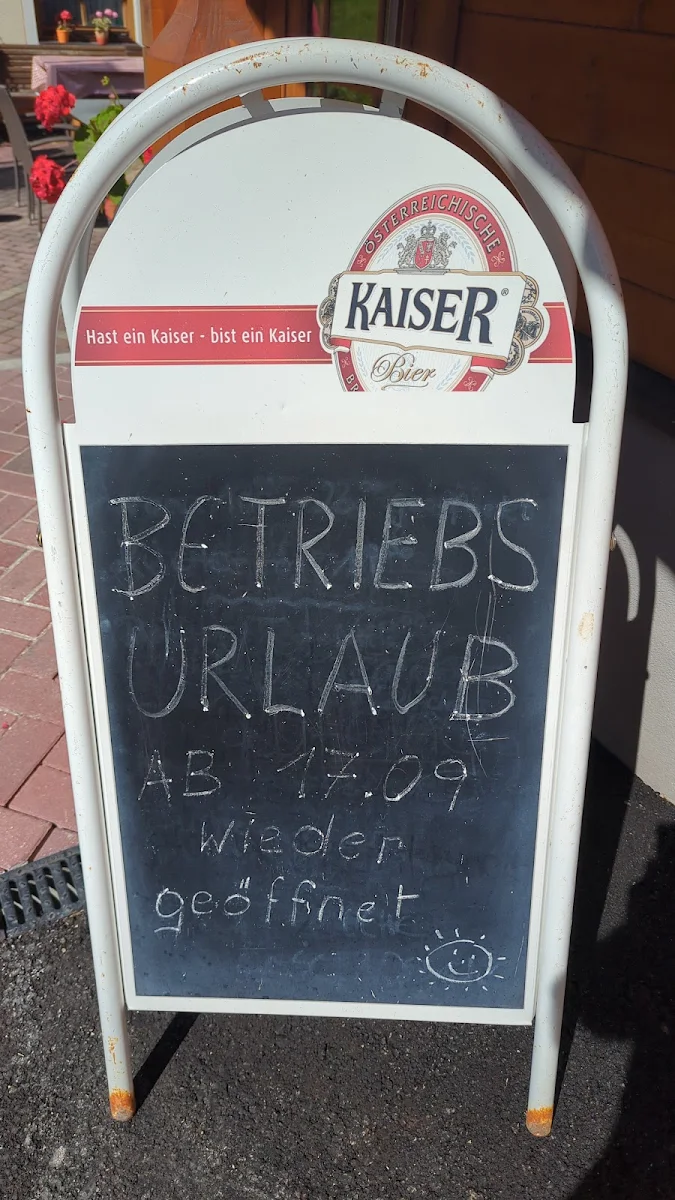 ÖSTERREICHISCHE
KAISER®
Hast ein Kaiser - bist ein Kaiser
Bier
BETRIEBS
URLAUB
AB 17.09
wieder
geöffnet